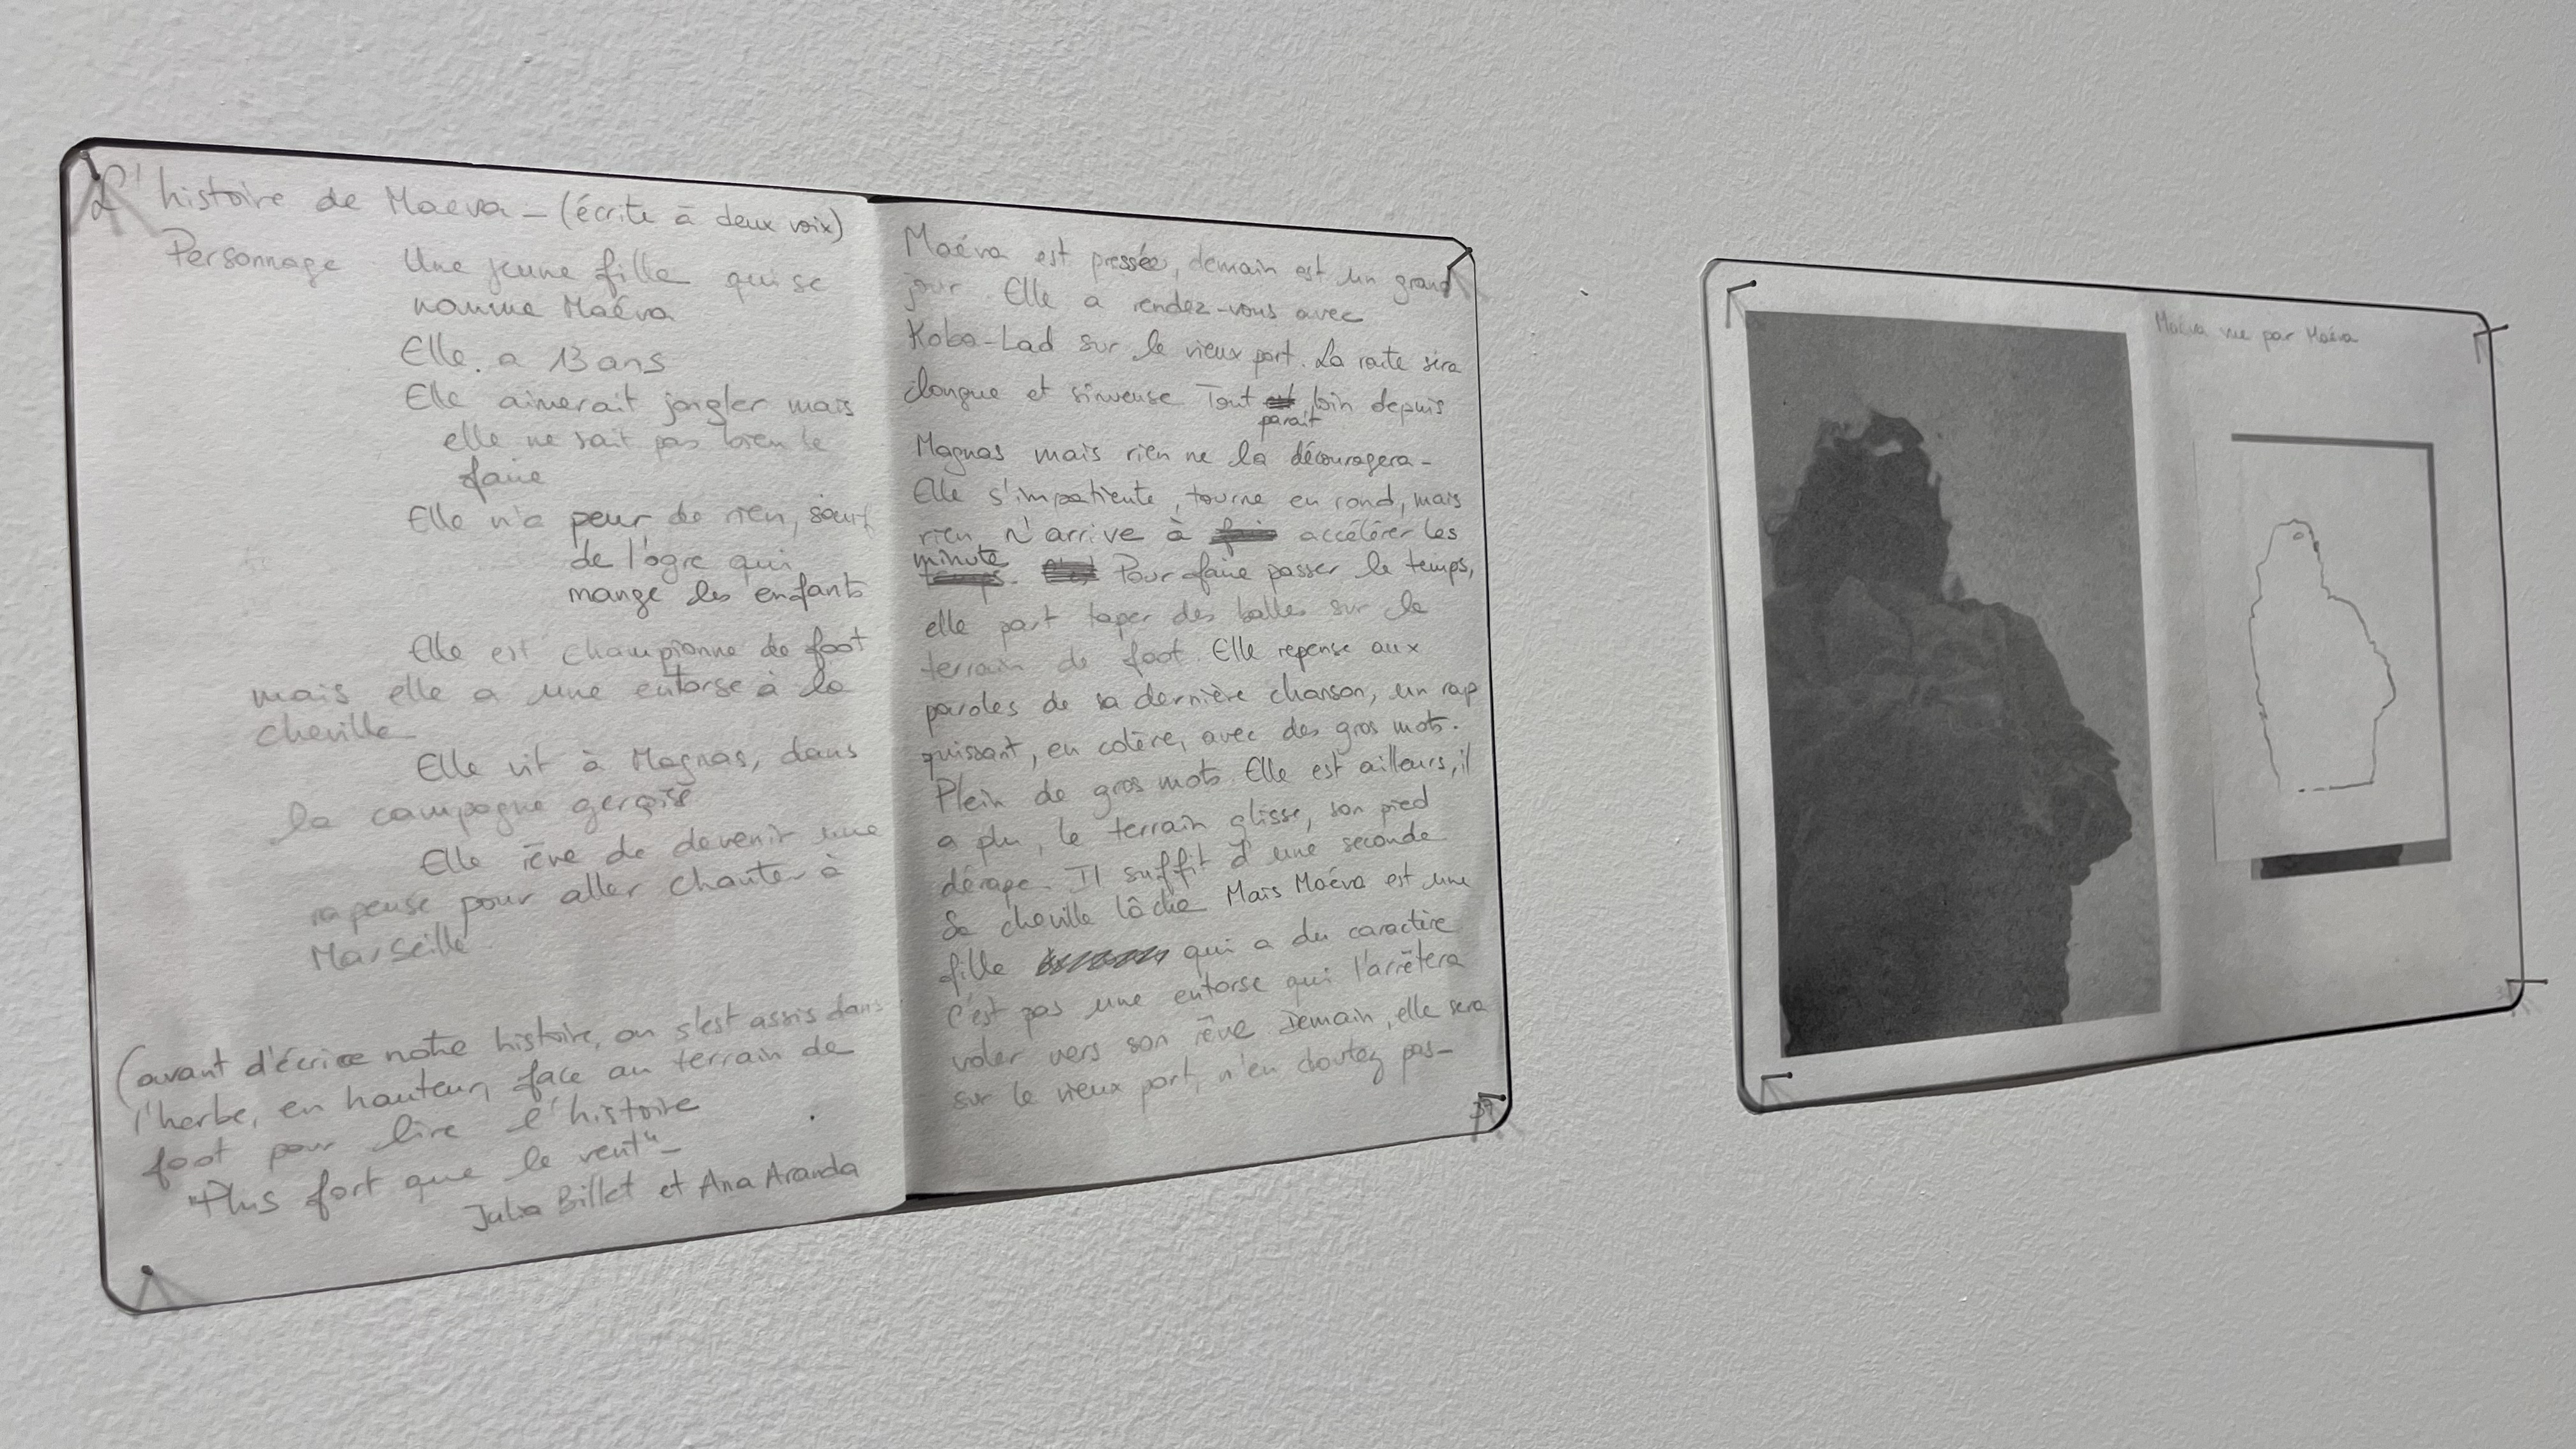 L'histoire de Maéva - (écrite à deux voix)
Personnage Une jeune fille qui se
nomme Maéva
Elle a 13 ans
Elle aimerait jongler mais
elle ne sait pas bien le
faire
Elle n'a peur de rien, sauf
de l'ogre qui
mange les enfants
Elle est championne de foot
mais elle a une entorse à la
cheville
Elle vit à Magnas, dans
la campagne gersoise
Elle rêve de devenir une
rapeuse pour aller chanter à
Marseille
(avant d'écrire notre histoire, on s'est assis dans
l'herbe, en hauteur, face au terrain de
foot pour lire l'histoire
"Plus fort que le vent" -
Julia Billet et Ana Aranda
Maéva est pressée, demain est un grand
jour. Elle a rendez-vous avec
Koba-Lad sur le vieux port. La route sera
longue et sinueuse Tout est loin depuis
parait
Magnas mais rien ne la découragera -
Elle s'impatiente, tourne en rond, mais
rien n'arrive à accélérer les
minute
temps. Pour faire passer le temps,
elle part taper des balles sur le
terrain de foot. Elle repense aux
paroles de sa dernière chanson, un rap
puissant, en colère, avec des gros mots.
Plein de gros mots. Elle est ailleurs, il
a plu, le terrain glisse, son pied
dérape. Il suffit d'une seconde
Sa cheville lâche Mais Maéva est une
fille qui a du caractère
C'est pas une entorse qui l'arrêtera
voler vers son rêve Demain, elle sera
sur le vieux port, n'en doutez pas -
39
Maéva vue par Maéva